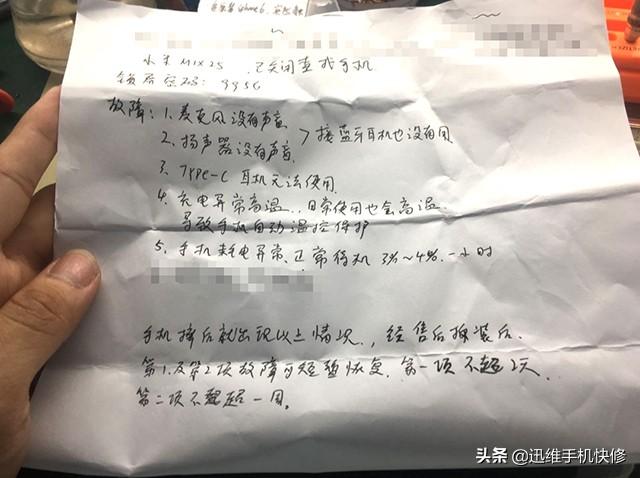 小米MIX2S 已关闭查找手机
锁屏密码: 9956
故障: 1. 麦克风没有声音
2. 扬声器没有声音 > 接蓝牙耳机也没有用
3. Type-C 耳机无法使用
4. 充电异常高温.. 日常使用也会高温
导致手机自动温控保护
5. 手机耗电异常. 正常待机 3%~4%. 一小时
手机摔后就出现以上情况., 经售后拆装后.
第1及第2项故障时短暂恢复. 第一项不超2天.
第二项不超一周。
头条@迅维手机快修